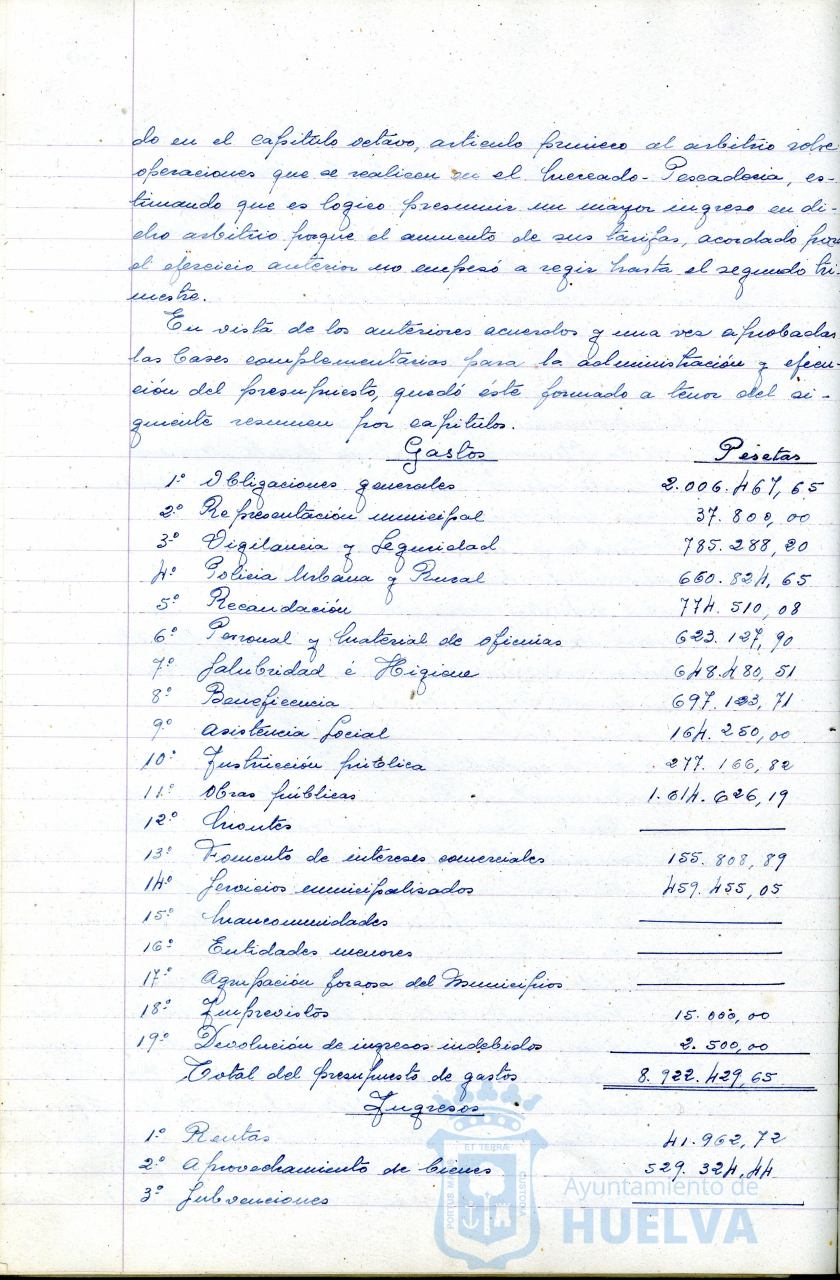 do en el capitulo octavo, articulo primero al arbitrio sobre
operaciones que se realicen en el Mercado-Pescaderia, es-
timando que es logico presumir un mayor ingreso en di-
cho arbitrio porque el aumento de sus tarifas, acordado para
el ejercicio anterior no empesó a regir hasta el segundo tri-
mestre.
En vista de los anteriores acuerdos y una vez aprobadas
las bases complementarias para la administración y ejecu-
ción del presupuesto, quedó éste formado a tenor del si-
guiente resumen por capitulos.
Gastos Pesetas
1º Obligaciones generales 2.006.467,65
2º Representación municipal 37.800,00
3º Vigilancia y Seguridad 785.288,20
4º Policia Urbana y Rural 660.824,65
5º Recaudación 774.510,08
6º Personal y material de oficinas 623.127,90
7º Salubridad é Higiene 648.480,51
8º Beneficencia 697.123,71
9º Asistencia Social 164.250,00
10º Instrucción pública 277.166,82
11º Obras públicas 1.614.626,19
12º Montes
13º Fomento de intereses comerciales 155.808,89
14º Servicios municipalizados 459.455,05
15º Mancomunidades
16º Entidades menores
17º Agrupación forzosa del Municipios
18º Imprevistos 15.000,00
19º Devolución de ingresos indebidos 2.500,00
Total del presupuesto de gastos 8.922.429,65
Ingresos
1º Rentas 41.962,72
2º Aprovechamiento de bienes 529.324,44
3º Subvenciones
PORTUS MARIS ET TERRÆ CUSTODIA
Ayuntamiento de
HUELVA